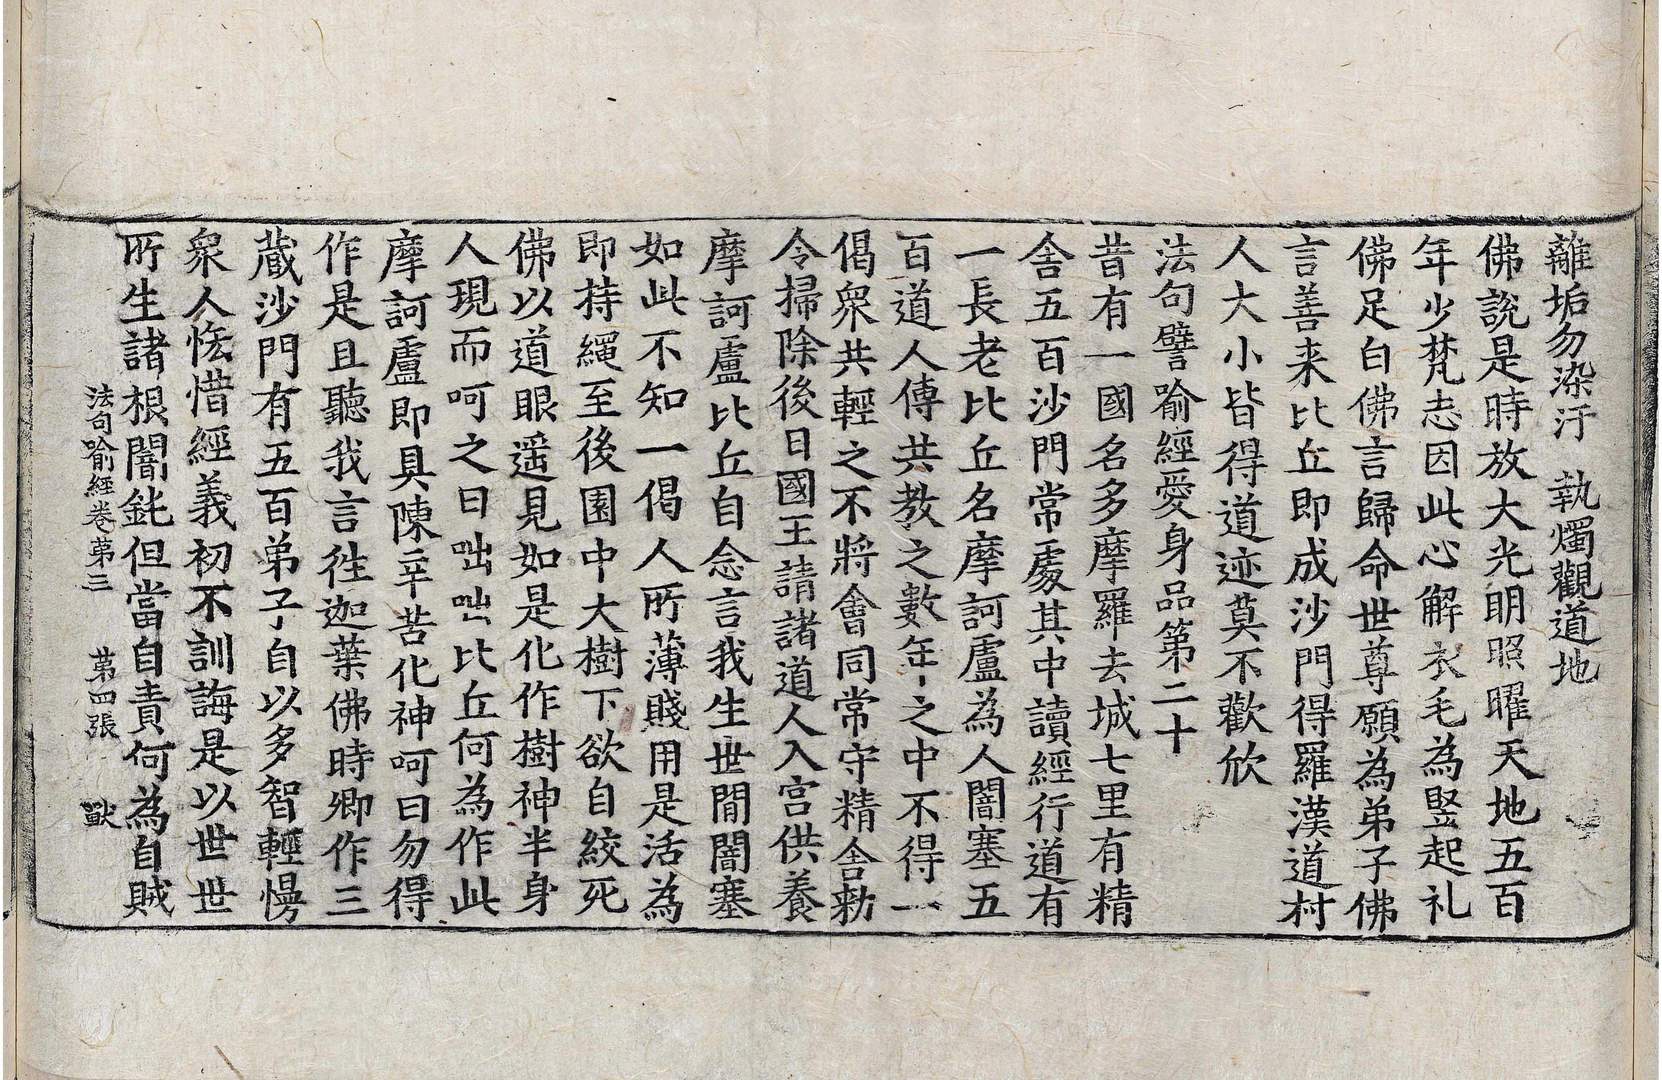 離垢勿染汙　執燭觀道地
佛說是時放大光明照曜天地五百
年少梵志因此心解衣毛為竪起礼
佛足白佛言歸命世尊願為弟子佛
言善来比丘即成沙門得羅漢道村
人大小皆得道迹莫不歡欣
法句譬喻經愛身品第二十
昔有一國名多摩羅去城七里有精
舍五百沙門常處其中讀經行道有
一長老比丘名摩訶盧為人闇塞五
百道人傳共教之數年之中不得一
偈衆共輕之不將會同常守精舍勑
令掃除後日國王請諸道人入宫供養
摩訶盧比丘自念言我生世間闇塞
如此不知一偈人所薄賤用是活為
即持繩至後園中大樹下欲自絞死
佛以道眼遥見如是化作樹神半身
人現而呵之曰咄咄比丘何為作此
摩訶盧即具陳辛苦化神呵曰勿得
作是且聽我言徃迦葉佛時卿作三
蔵沙門有五百弟子自以多智輕慢
衆人悋惜經義初不訓誨是以世世
所生諸根闇鈍但當自責何為自賊
法句喻經卷苐三　苐四張　獸